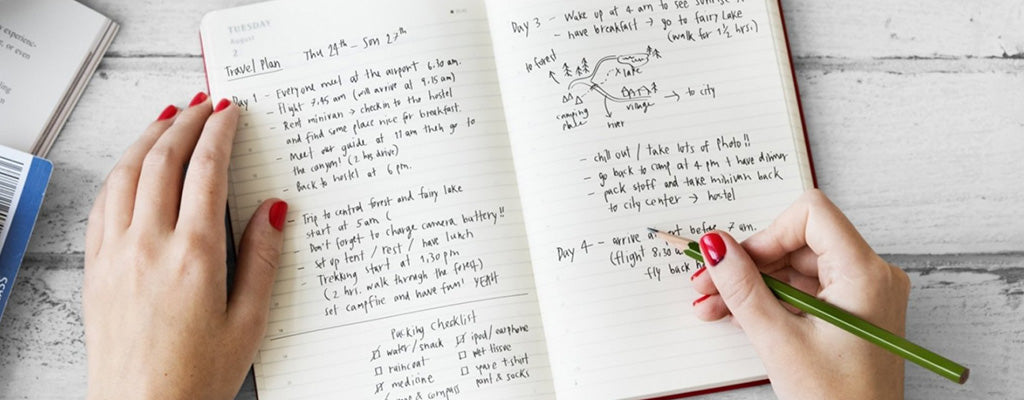 experience-
or even
TUESDAY
August
2
Travel Plan Thu 24th - Sun 27th
Day 1 - Everyone meet at the airport 6:30 am.
- Flight 7.45 am (will arrive at 9.15 am)
- Rent minivan → check in to the hostel
and find some place nice for breakfast.
- Meet our guide at 11 am then go to
the canyons (2 hrs drive)
- Back to hostel at 6 pm.
- Trip to central forest and fairy lake
start at 5 am (
Don't forget to charge camera battery!!
- Set up tent / rest / have lunch
- Trekking start at 1:30 pm
(2 hrs. walk through the forest)
set campfire and have fun! YEAH
Packing Checklist
water/snack
raincoat
medicine
& compass
ipod/earphone
wet tissue
t-shirt
pant & socks
Day 3 - Wake up at 4 am to see sunrise
- have breakfast → go to fairy Lake
(walk for 1 1/2 hrs.)
to forest
lake
camping
place
village
river
→ to city
- chill out / take lots of photo!!
- go back to camp at 4 pm + have dinner
- pack stuff and take minivan back
to city center → hostel
Day 4 - arrive before 7 am.
(flight 8:30
fly back